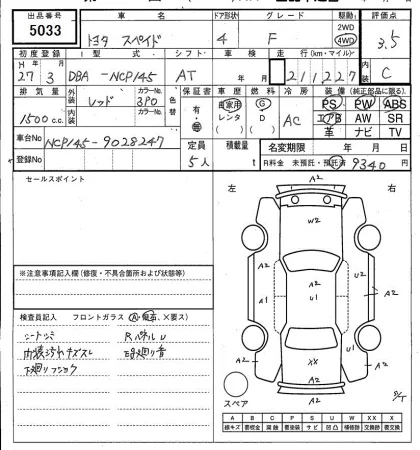 出品番号 車名 ドア形状 グレード 駆動 評価点
5033 トヨタ スペイド 4 F 2WD 4WD 3.5
初度登録 型式 シフト 車検 走行(km・マイル) 内装
H年 27 月 3 DBA - NCP145 AT 年 月 211227 C
排気量 外装 カラーNo. 色替 保証書 車歴 燃料 冷房 装備(純正部品に限る)
1500 c.c. レッド 3P0 有・無 自家用 レンタ G D AC PS PW ABS
内装 カラーNo. エアB AW SR
革 ナビ TV
車台No NCP145-9028247 定員 積載量 名変期限 年 月 日
登録No 5人 t R料金 未預託・預託済 9340 円
セールスポイント
左 右
A2
A2
W2
A2 U2
A1 U1 A2
A2
XX U1
A2 A2
A2
※注意事項記入欄(修復・不具合箇所および状態等)
検査員記入 フロントガラス(A・飛石、X要ス)
シートシミ Rパネルu
内装汚れキズスレ
下廻りサビ
スペア
A B C P S U W X XX
線キズ 腐蝕 サビ 凹凸 補修跡 要交換 交換済